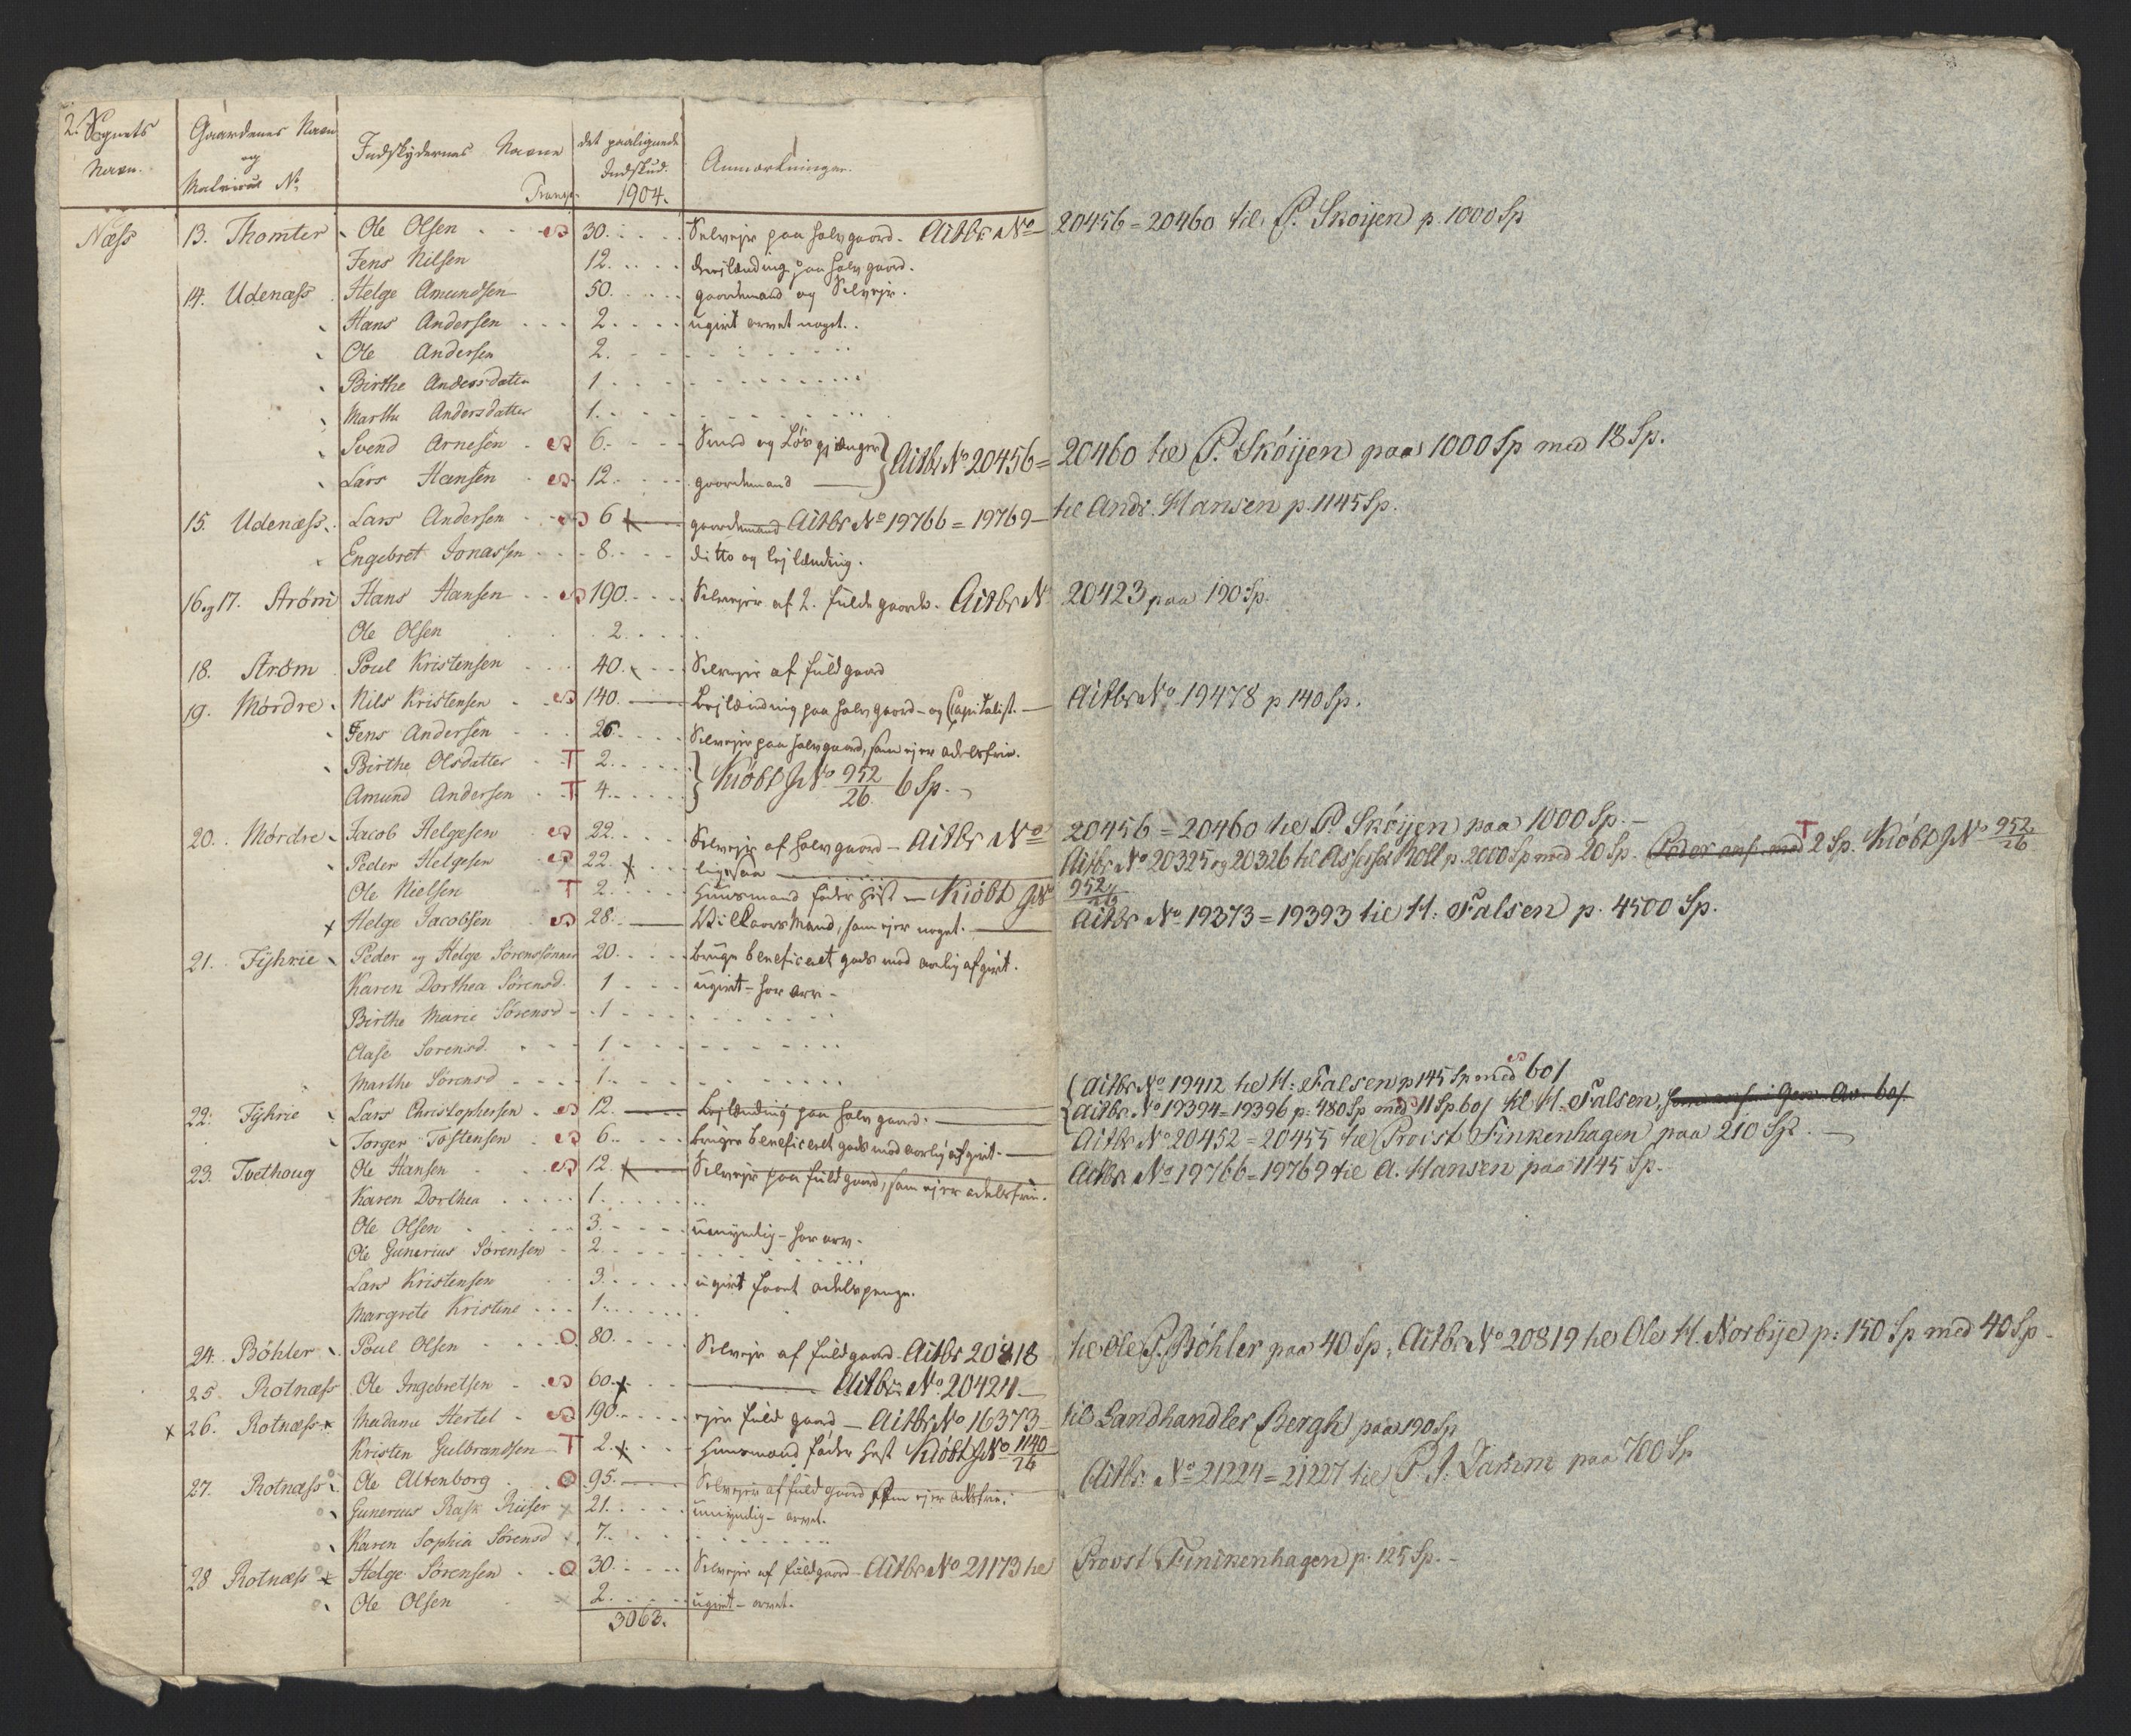 2. Sognets Navn. | Gaardenes Navn og Matricul No. | Indskydernes Navne | det paalignede Indskud. | Anmærkninger.
Transp. 1904.
Næss 13. Thomter Ole Olsen 30. Selvejer paa halv gaard. Actbr No 20456=20460 til P. Skøijen p. 1000 Sp
Jens Nilsen 12. Lejlænding paa halv gaard.
14. Udenæss Helge Amundsen 50. gaardmand og Selvejer.
Hans Andersen 2. ugivt arvet noget.
Ole Andersen 2.
Birthe Andersdatter 1
Marthe Andersdatter 1.
Svend Arnesen 6. Smed og Løsgjænger } Actbr No 20456= 20460 til P. Skøijen paa 1000 Sp med 18 Sp.
Lars Hansen 12. gaardmand
15. Udenæss Lars Andersen 6 gaardmand Actbr No 19766=19769 til Andr. Hansen p. 1145 Sp.
Engebret Jonassen 8. ditto og lejlænding.
16 og 17. Strøm Hans Hansen 190. Selvejer af 2. fulde gaarde. Actbr N 20423 paa 190 Sp.
Ole Olsen 2.
18. Strøm Poul Kristensen 40. Selvejer af fuldgaard
19. Mørdre Nils Kristensen 140. Lejlænding paa halv gaard og Capitalist. Actbr No 19478 p 140 Sp.
Jens Andersen 26. Selvejer paa halv gaard, som ejer odelsfrie.
Birthe Olsdatter T 2. } Kiøbt J No 952/26 6 Sp.
Amund Andersen T 4.
20. Mørdre Jacob Helgesen 22. Selvejer af halv gaard Actbr No 20456=20460 til P. Skøijen paa 1000 Sp.
Peder Helgesen 22. ligesaa Actbr No 20325 og 20326 til Assessor Roll p. 2000 Sp med 20 Sp. T 2 Sp. Kiøbt J No 952/26
Ole Nielsen T 2. Huusmand føder Hest Kiøbt J No 952/26
Helge Jacobsen 28. Vilkaarsmand, som ejer noget. Actbr No 19373=19393 til H. Falsen p. 4500 Sp.
21. Fijhrie Peder og Helge Sørenssønner 20. bruger beneficeret gods mod aarlig afgivt.
Karen Dorthea Sørensd. 1 ugivt har arv
Birthe Marie Sørensd 1
Aase Sørensd. 1
Marthe Sørensd 1. { Actbr No 19412 til H: Falsen p 145 Sp med 60 ſ
22. Fijhrie Lars Christophersen 12. Lejlænding paa halv gaard. { Actbr No 19394=19396 p. 480 Sp med 11 Sp 60 ſ til H. Falsen,
Torger Tostensen 6. bruger beneficeret gods mod aarlig afgivt. Actbr No 20452=20455 til Provst Finkenhagen paa 210 Sp.
23. Tvethoug Ole Hansen 12. Selvejer paa fuldgaard, som ejer odelsfrie. Actbr No 19766=19769 til A. Hansen paa 1145 Sp.
Karen Dorthea 1.
Ole Olsen 3. umyndig har arv.
Ole Gunerius Sørensen 2.
Lars Kristensen 3. ugivt faaet odelspenge.
Margrete Kristine 1.
24. Bøhler Poul Olsen 80. Selvejer af fuldgaard Actbr 20818 til Ole P. Bøhler paa 40 Sp, Actbr No 20819 til Ole H. Norbye p: 150 Sp med 40 Sp
25. Rotnæss Ole Ingebretsen 60. Actbr No 20424
26. Rotnæss Madame Hertel 190. ejer fuld gaard Actbr No 16373 til Landhandler Bergh paa 190 Sp
Kristen Gulbrandsen T 2. Huusmand føder Hest Kiøbt J No 1140/26
27. Rotnæss Ole Altenborg 95. Selvejer af fuldgaard som ejer odelsfrie. Actbr: No 21224=21227 til P. J. Damm paa 700 Sp
Gunerius Rask Riiser 21. umyndig arvet.
Karen Sophia Sørensd 7.
28 Rotnæss Helge Sørensen 30. Selvejer af fuldgaard Actbr No 21173 til Provst Finkenhagen p. 125 Sp.
Ole Olsen 2. ugivt arvet.
3063.